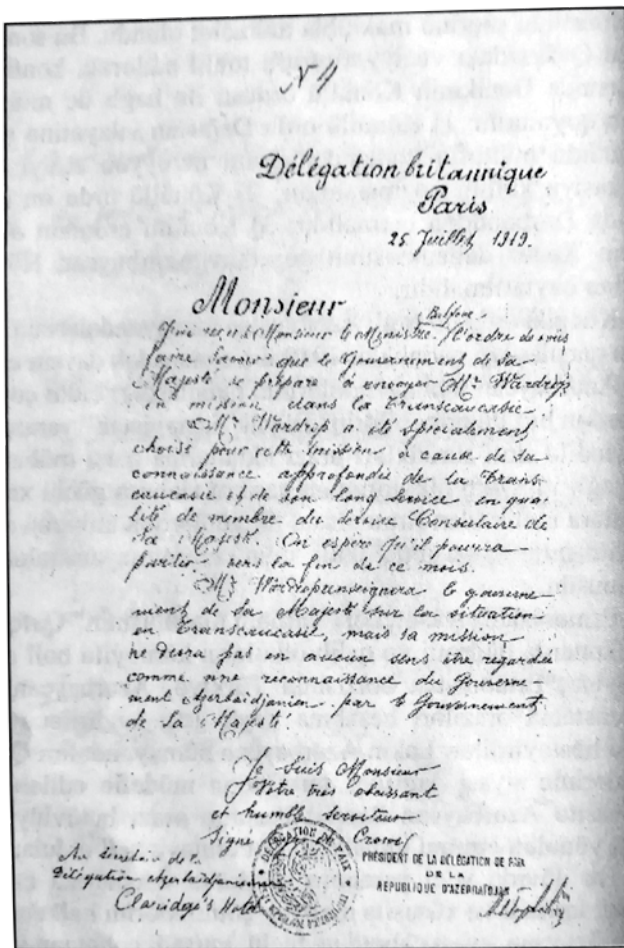 N 4
Délégation britannique
Paris
25 Juillet 1919.
Monsieur
Balfour
J'ai reçu de Monsieur le Ministre l'ordre de vous
faire savoir que le Gouvernement de sa
Majesté se prépare à envoyer Mr. Wardrop
en mission dans la Transcaucasie.
Mr. Wardrop a été spécialement
choisi pour cette mission à cause de sa
connaissance approfondie de la Trans
caucasie et de son long service en qua
lité de membre du service Consulaire de
sa Majesté. On espère qu'il pourra
partir vers la fin de ce mois.
Mr. Wardrop renseignera le gouverne
ment de sa Majesté sur la situation
en Transcaucasie, mais sa mission
ne devra pas en aucun sens être regardée
comme une reconnaissance du Gouverne
ment Azerbaidjanien par le Gouvernement
de Sa Majesté.
Je suis Monsieur
Votre très obéissant
et humble serviteur
Signé
Au secrétaire de la
Délégation azerbaidjanienne
Claridge's Hotel
PRÉSIDENT DE LA DÉLÉGATION DE PAIX
DE LA
RÉPUBLIQUE D'AZERBAÏDJAN